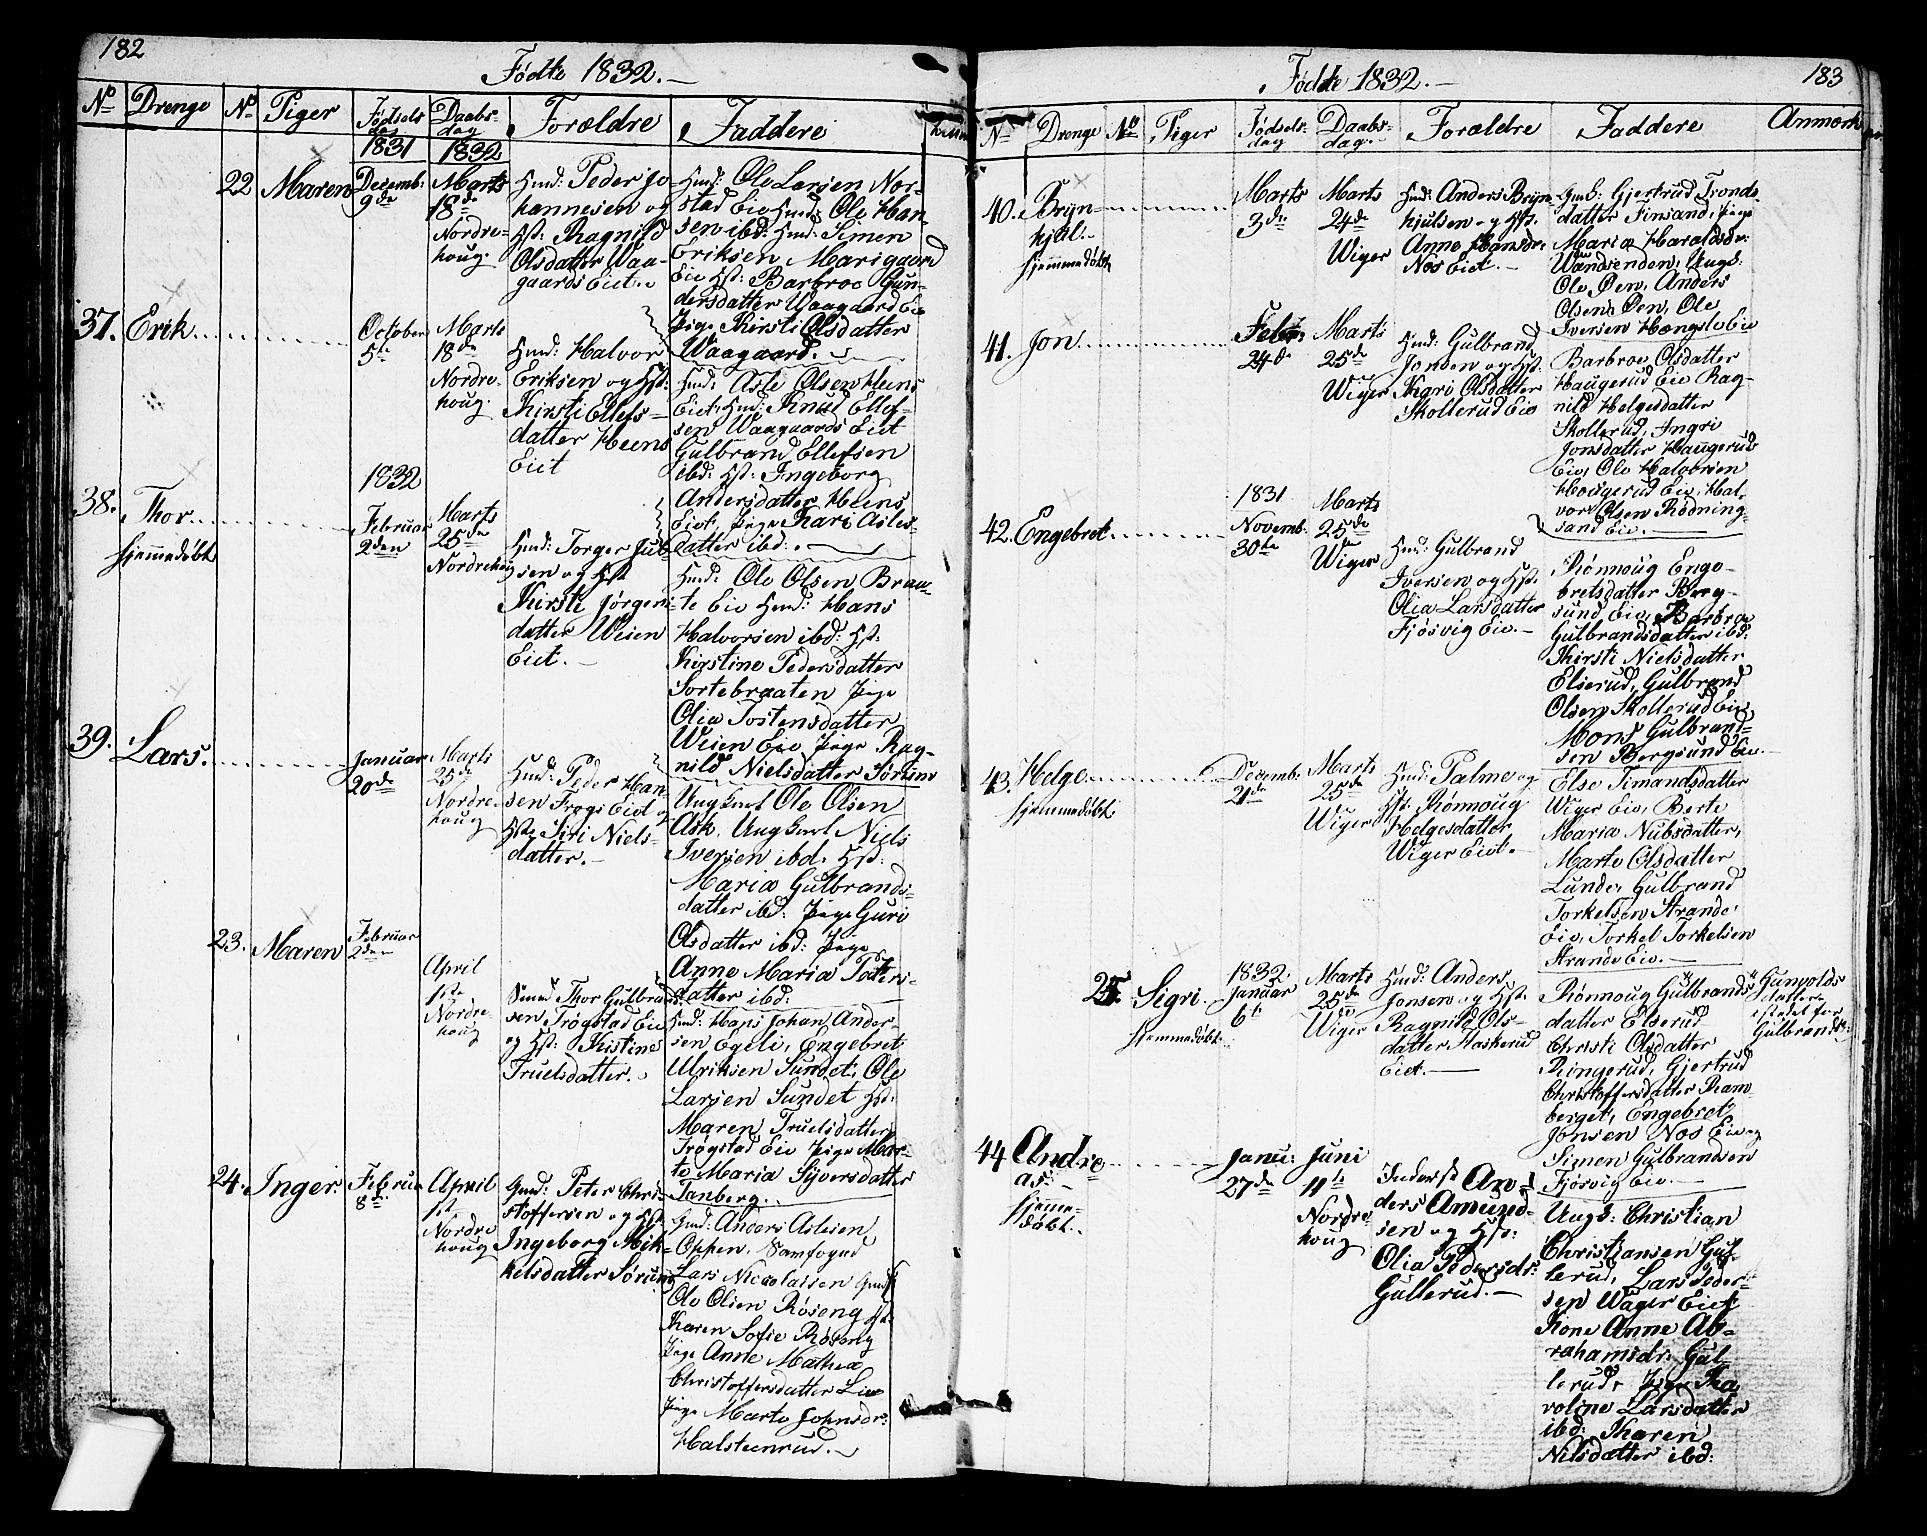 182
Födte 1832.
No Drenge No Piger Fødsels dag Daabs dag Forældre Faddere
1831 1832
22 Maren
Decemb:
9de
Marts
18de
Nordre-
houg.
Hmd: Peder Jo
hannesen og
Hst: Ragnild
Olsdatter Waa-
gaards Eiet.
Hmd: Ole Larsen Nor-
stad Eie Hmd: Ole Han
sen ibd: Hmd: Simen
Eriksen Marigaard
Eie Hst: Barbroe Gun-
dersdatter Waagaard Eie
Pige Kirsti Olsdatter
Waagaard.
37. Erik
October
5te
Marts
18de
Nordre-
houg.
Hmd: Halvor
Eriksen og Hst:
Kirsti Ellefs-
datter Heens
Eiet
Hmd: Asle Olsen Heens
Eiet, Hmd: Knud Ellef-
sen Waagaards Eiet
Gulbrand Ellefsen
ibd: Hst: Ingeborg
Andersdatter Heens
Eiet, Pige Kari Asles-
datter ibd:
38. Thor
hjemmedøbt
1832
Februar
2den
Marts
25de
Nordrehoug
Hmd: Torger Jul-
sen og Hst
Kirsti Jørgens
datter Weien
Eiet.
Hmd: Ole Olsen Brau-
te Eie Hmd: Hans
Halvorsen ibd: Hst:
Kirstine Pedersdatter
Sortebraaten Pige
Olia Tostensdatter
Weien Eie Pige Rag-
nild Nielsdatter Sørum
39. Lars.
Januar
20de
Marts
25de
Nordre-
houg
Hmd: Peder Han
sen Frogs Eiet og
Hst: Siri Niels-
datter.
Ungkarl Ole Olsen
Ask, Ungkarl Niels
Iversen ibd. Hst:
Maria Gulbrands-
datter ibd: Pige Guri
Olsdatter ibd: Pige
Anne Maria Peders-
datter ibd:
23. Maren
Februar
2den
April
1ste
Nordre-
houg
Smed Thor Gulbrand
sen Trøgstad Eie
og Hst: Kistine
Truelsdatter.
Hmd: Hans Johan Ander-
sen Egeli, Engebret
Ulriksen Sundet, Ole
Larsen Sundet Hst:
Maren Truelsdatter
Trøgstad Eie Pige Mar-
te Maria Syversdatter
Tanberg.
24. Inger.
Februar
8de
April
1st
Nordre
houg
Gmd: Peter Chri-
stoffersen og Hst
Ingeborg Mik-
kelsdatter Sørum
Gmd: Anders Aslesen
Oppen, Samfogud
Lars Nicolaisen Gmd
Ole Olsen Røseng Hst:
Karen Sofie Røseng
Pige Anne Mathea
Christoffersdatter Lie
Pige Marte Johnsdr:
Halsteenrud.
183
Födte 1832.
No Drenge No Piger Fødsels-dag Daabs-dag. Forældre Faddere Anmærk
40. Bryn-
hjul.
hjemmedøbt
Marts
3de
Marts
24de
Wiger
Hmd: Anders Bryn-
hjulsen og Hst.
Anne Hansdr:
Nøs Eiet.
Gmd: Gjertrud Tronds-
datter Finsand, Pige
Maria Haraldsdr:
Wændsenden, Ungd:
Ole Øen, Anders
Olsen Øen, Ole
Iversen Hængsle Eie
41. Jon
Febr:
24de
Marts
25de
Wiger
Hmd: Gulbrand
Jonsen og Hst:
Ingri Olsdatter
Skollerud Eie
Barbroe Olsdatter
Haugerud Eie Rag-
nild Helgesdatter
Skollerud, Ingri
Jonsdatter Haugerud
Eie, Ole Halvorsen
Houserud Eie, Hal-
vor Olsen Rødning-
sand Eie.
42. Engebret
1831
Novemb:
30te
Marts
25de
Wiger
Hmd: Gulbrand
Iversen og Hst:
Olia Larsdatter
Fjøsvig Eie.
Rønnoug Enge-
bretsdatter Berg-
sund Eie, Barbroe
Gulbrandsdatter ibd:
Kirsti Nielsdatter
Elserud, Gulbrand
Olsen Skollerud Eie,
Mons Gulbrand-
sen Bergsund Eie.
43. Helge
hjemmedøbt
Decemb:
21de
Marts
25de
Wiger
Hmd: Palme og
Hst: Rønnoug
Helgesdatter
Wiger Eiet.
Else Timandsdatter
Wiger Eie, Berte
Maria Nubsdatter,
Marte Olsdatter
Lunde, Gulbrand
Torkelsen Strande
Eie, Torkel Torkelsen
Strande Eie.
25. Sigri.
hjemmedøbt.
1832
Januar
6te
Marts
25de
Wiger
Hmd: Anders
Jonsen og Hst.
Ragnild Ols-
datter Haskerud
Eiet.
Rønnoug Gulbrands
datter Elserud
Christi Olsdatter
Ringerud, Gjertrud
Christoffersdatter Ram
berget, Engebret
Jonsen Nøs Eie og
Simen Gulbrandsen
Fjøsvig Eie.
Gunvolds
datter
istedet for
Gulbrands:
44 Andre
as.
hjemme-
døbt.
Janu:
27de
Juni
11te
Nordre
houg
Inderst An-
ders Amund-
sen og Hst:
Olia Pedersdr:
Gullerud.
Ungd: Christian
Christiansen Gul-
lerud, Lars Peder-
sen Wager Eiet
Kone Anne Ab-
rahamsdr: Gul-
lerud, Pige Ka
roline Larsdatter
ibd: Karen
Nilsdatter ibd: